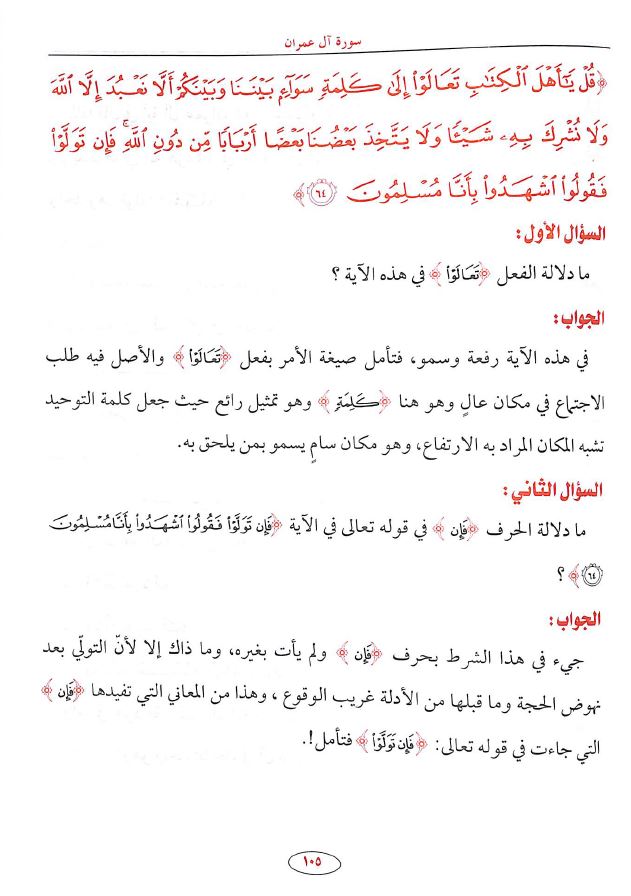 سورة آل عمران
﴿قُلْ يَٰٓأَهْلَ ٱلْكِتَٰبِ تَعَالَوْا۟ إِلَىٰ كَلِمَةٍ سَوَآءٍۭ بَيْنَنَا وَبَيْنَكُمْ أَلَّا نَعْبُدَ إِلَّا ٱللَّهَ
وَلَا نُشْرِكَ بِهِۦ شَيْـًٔا وَلَا يَتَّخِذَ بَعْضُنَا بَعْضًا أَرْبَابًا مِّن دُونِ ٱللَّهِ ۚ فَإِن تَوَلَّوْا۟
فَقُولُوا۟ ٱشْهَدُوا۟ بِأَنَّا مُسْلِمُونَ ٦٤﴾
السؤال الأول:
ما دلالة الفعل ﴿تَعَالَوْا۟﴾ في هذه الآية ؟
الجواب:
في هذه الآية رفعة وسمو، فتأمل صيغة الأمر بفعل ﴿تَعَالَوْا۟﴾ والأصل فيه طلب
الاجتماع في مكان عالٍ وهو هنا ﴿كَلِمَةٍ﴾ وهو تمثيل رائع حيث جعل كلمة التوحيد
تشبه المكان المراد به الارتفاع، وهو مكان سامٍ يسمو بمن يلحق به.
السؤال الثاني:
ما دلالة الحرف ﴿فَإِن﴾ في قوله تعالى في الآية ﴿فَإِن تَوَلَّوْا۟ فَقُولُوا۟ ٱشْهَدُوا۟ بِأَنَّا مُسْلِمُونَ
٦٤﴾ ؟
الجواب:
جيء في هذا الشرط بحرف ﴿فَإِن﴾ ولم يأت بغيره، وما ذاك إلا لأنّ التولّي بعد
نهوض الحجة وما قبلها من الأدلة غريب الوقوع ، وهذا من المعاني التي تفيدها ﴿فَإِن﴾
التي جاءت في قوله تعالى: ﴿فَإِن تَوَلَّوْا۟﴾ فتأمل!.
١٠٥